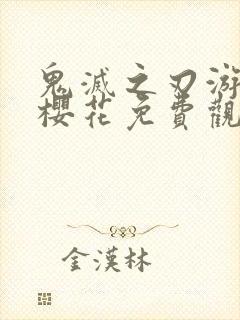 鬼滅之刃游
櫻花免費觀
金漢林